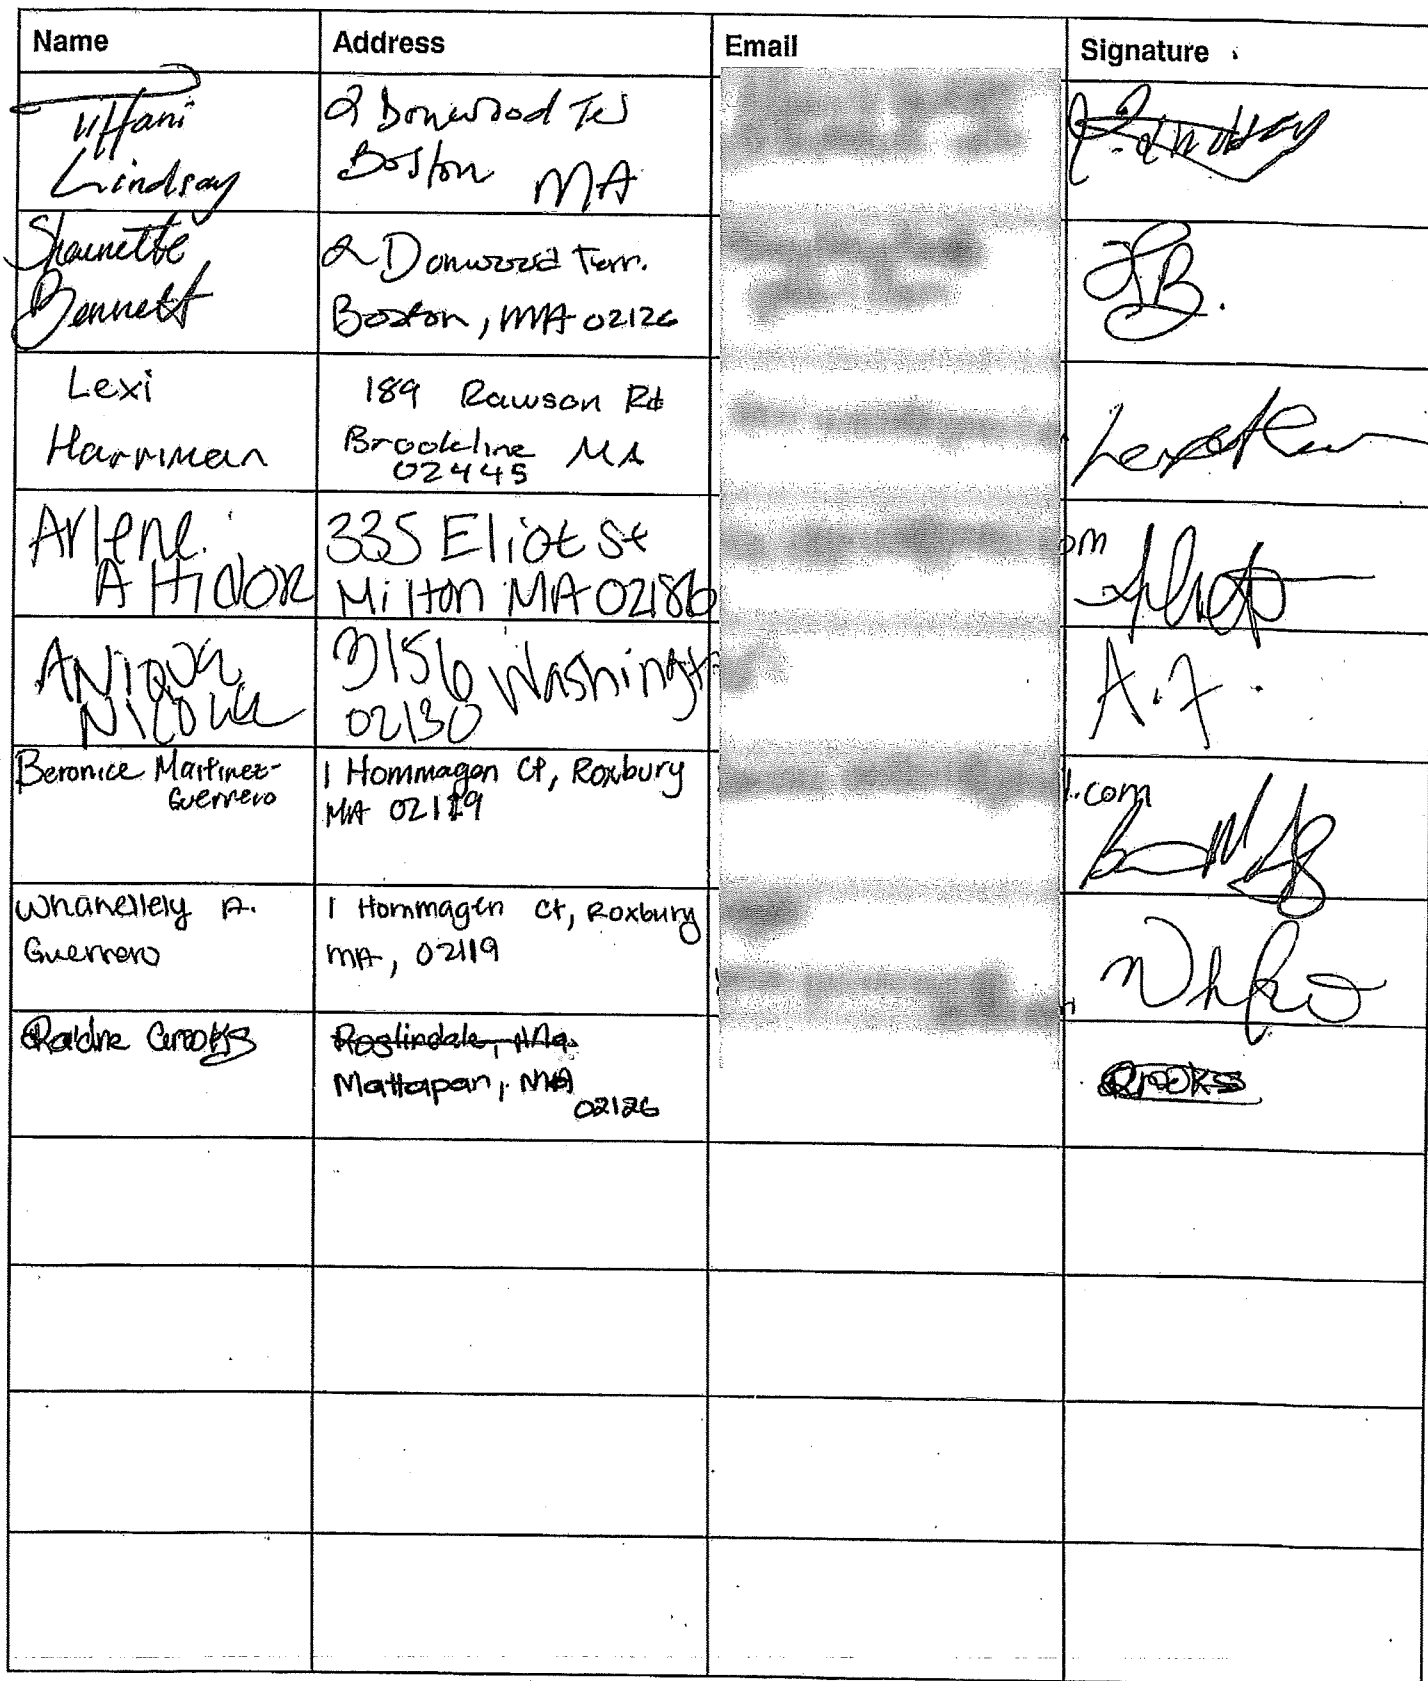 Name Address Email Signature
Tiffani
Lindsay
2 Donwood Ter
Boston MA
Lindsay
Shaunette
Bennett
2 Donwood Terr.
Boston, MA 02126
SB.
Lexi
Harriman
189 Rawson Rd
Brookline MA
02445
Arlene
Altidor
335 Eliot St
Milton MA 02186
om
Aniqua
Nicole
3156 Washingt
02130
A.F.
Beronice Martinez-
Guerrero
1 Hommagen Ct, Roxbury
MA 02119
l.com
Whanellely A.
Guerrero
1 Hommagen Ct, Roxbury
MA, 02119
n
Crooks
Roslindale, Ma.
Mattapan, MA
02126
Crooks